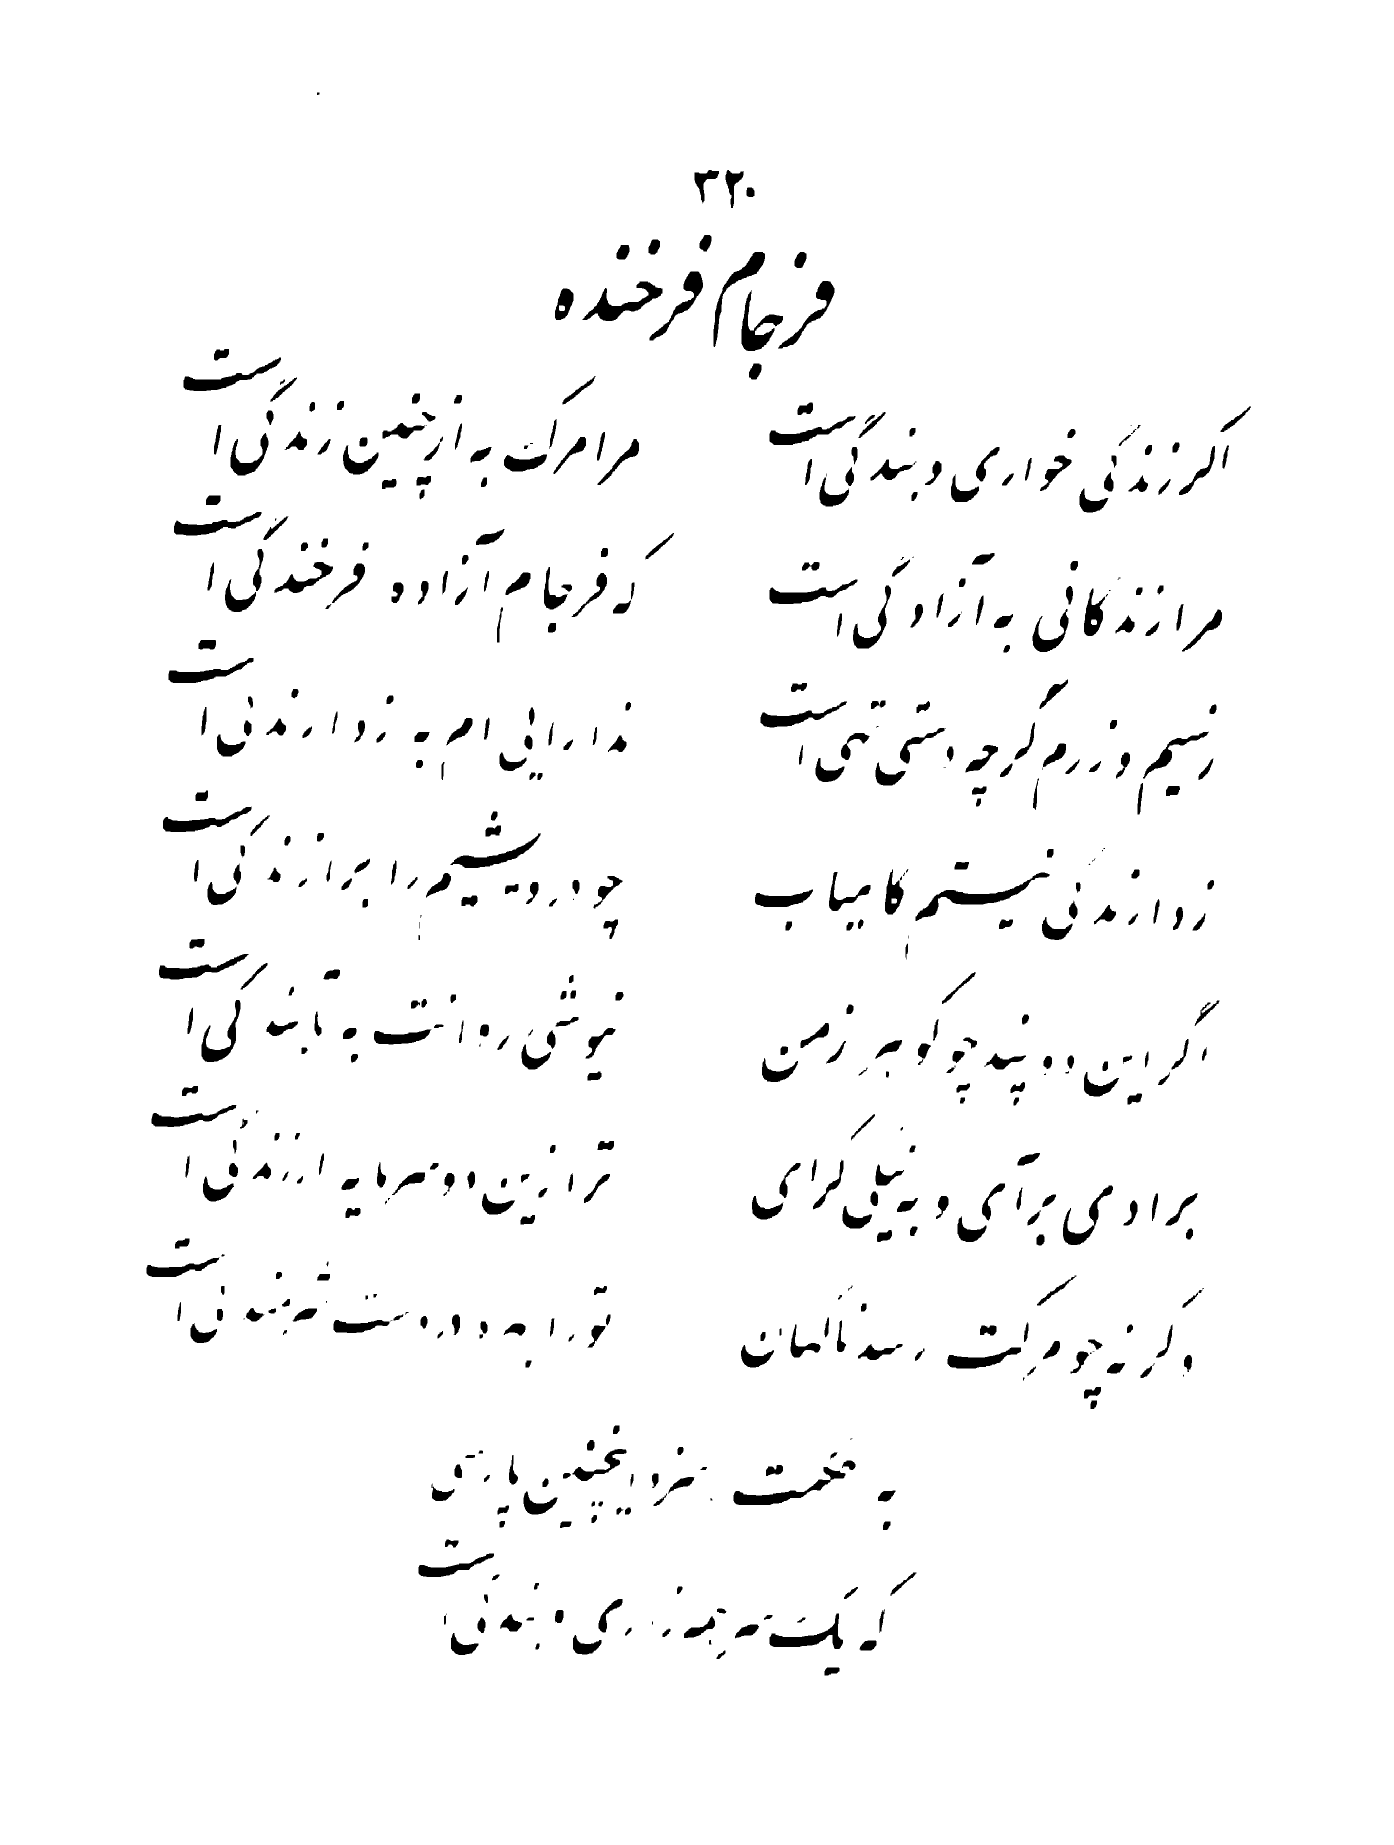 ۳۲۰
فرجام فرخنده
اگر زندگی خواری و بندگی است
مرا مرگ به از چنین زندگی است
مرا زندگانی به آزادگی است
که فرجام آزاده فرخندگی است
ز سیم و زرم گرچه دستی تهی است
نه دارایی ام به ز دارندگی است
ز دارندگی نیستم کامیاب
چو درویشیم را برازندگی است
اگر این دو پند چو گوهر ز من
نیوشی روانت به تابندگی است
برادی برآی و به نیکی گرای
ترا زین دو سرمایه ارزندگی است
وگرنه چو مرگت رسد ناگهان
تو را به دو دست تهی بندگی است
به حکمت سزد اینچنین پارسی
که یک سر همه زاری و بندگی است